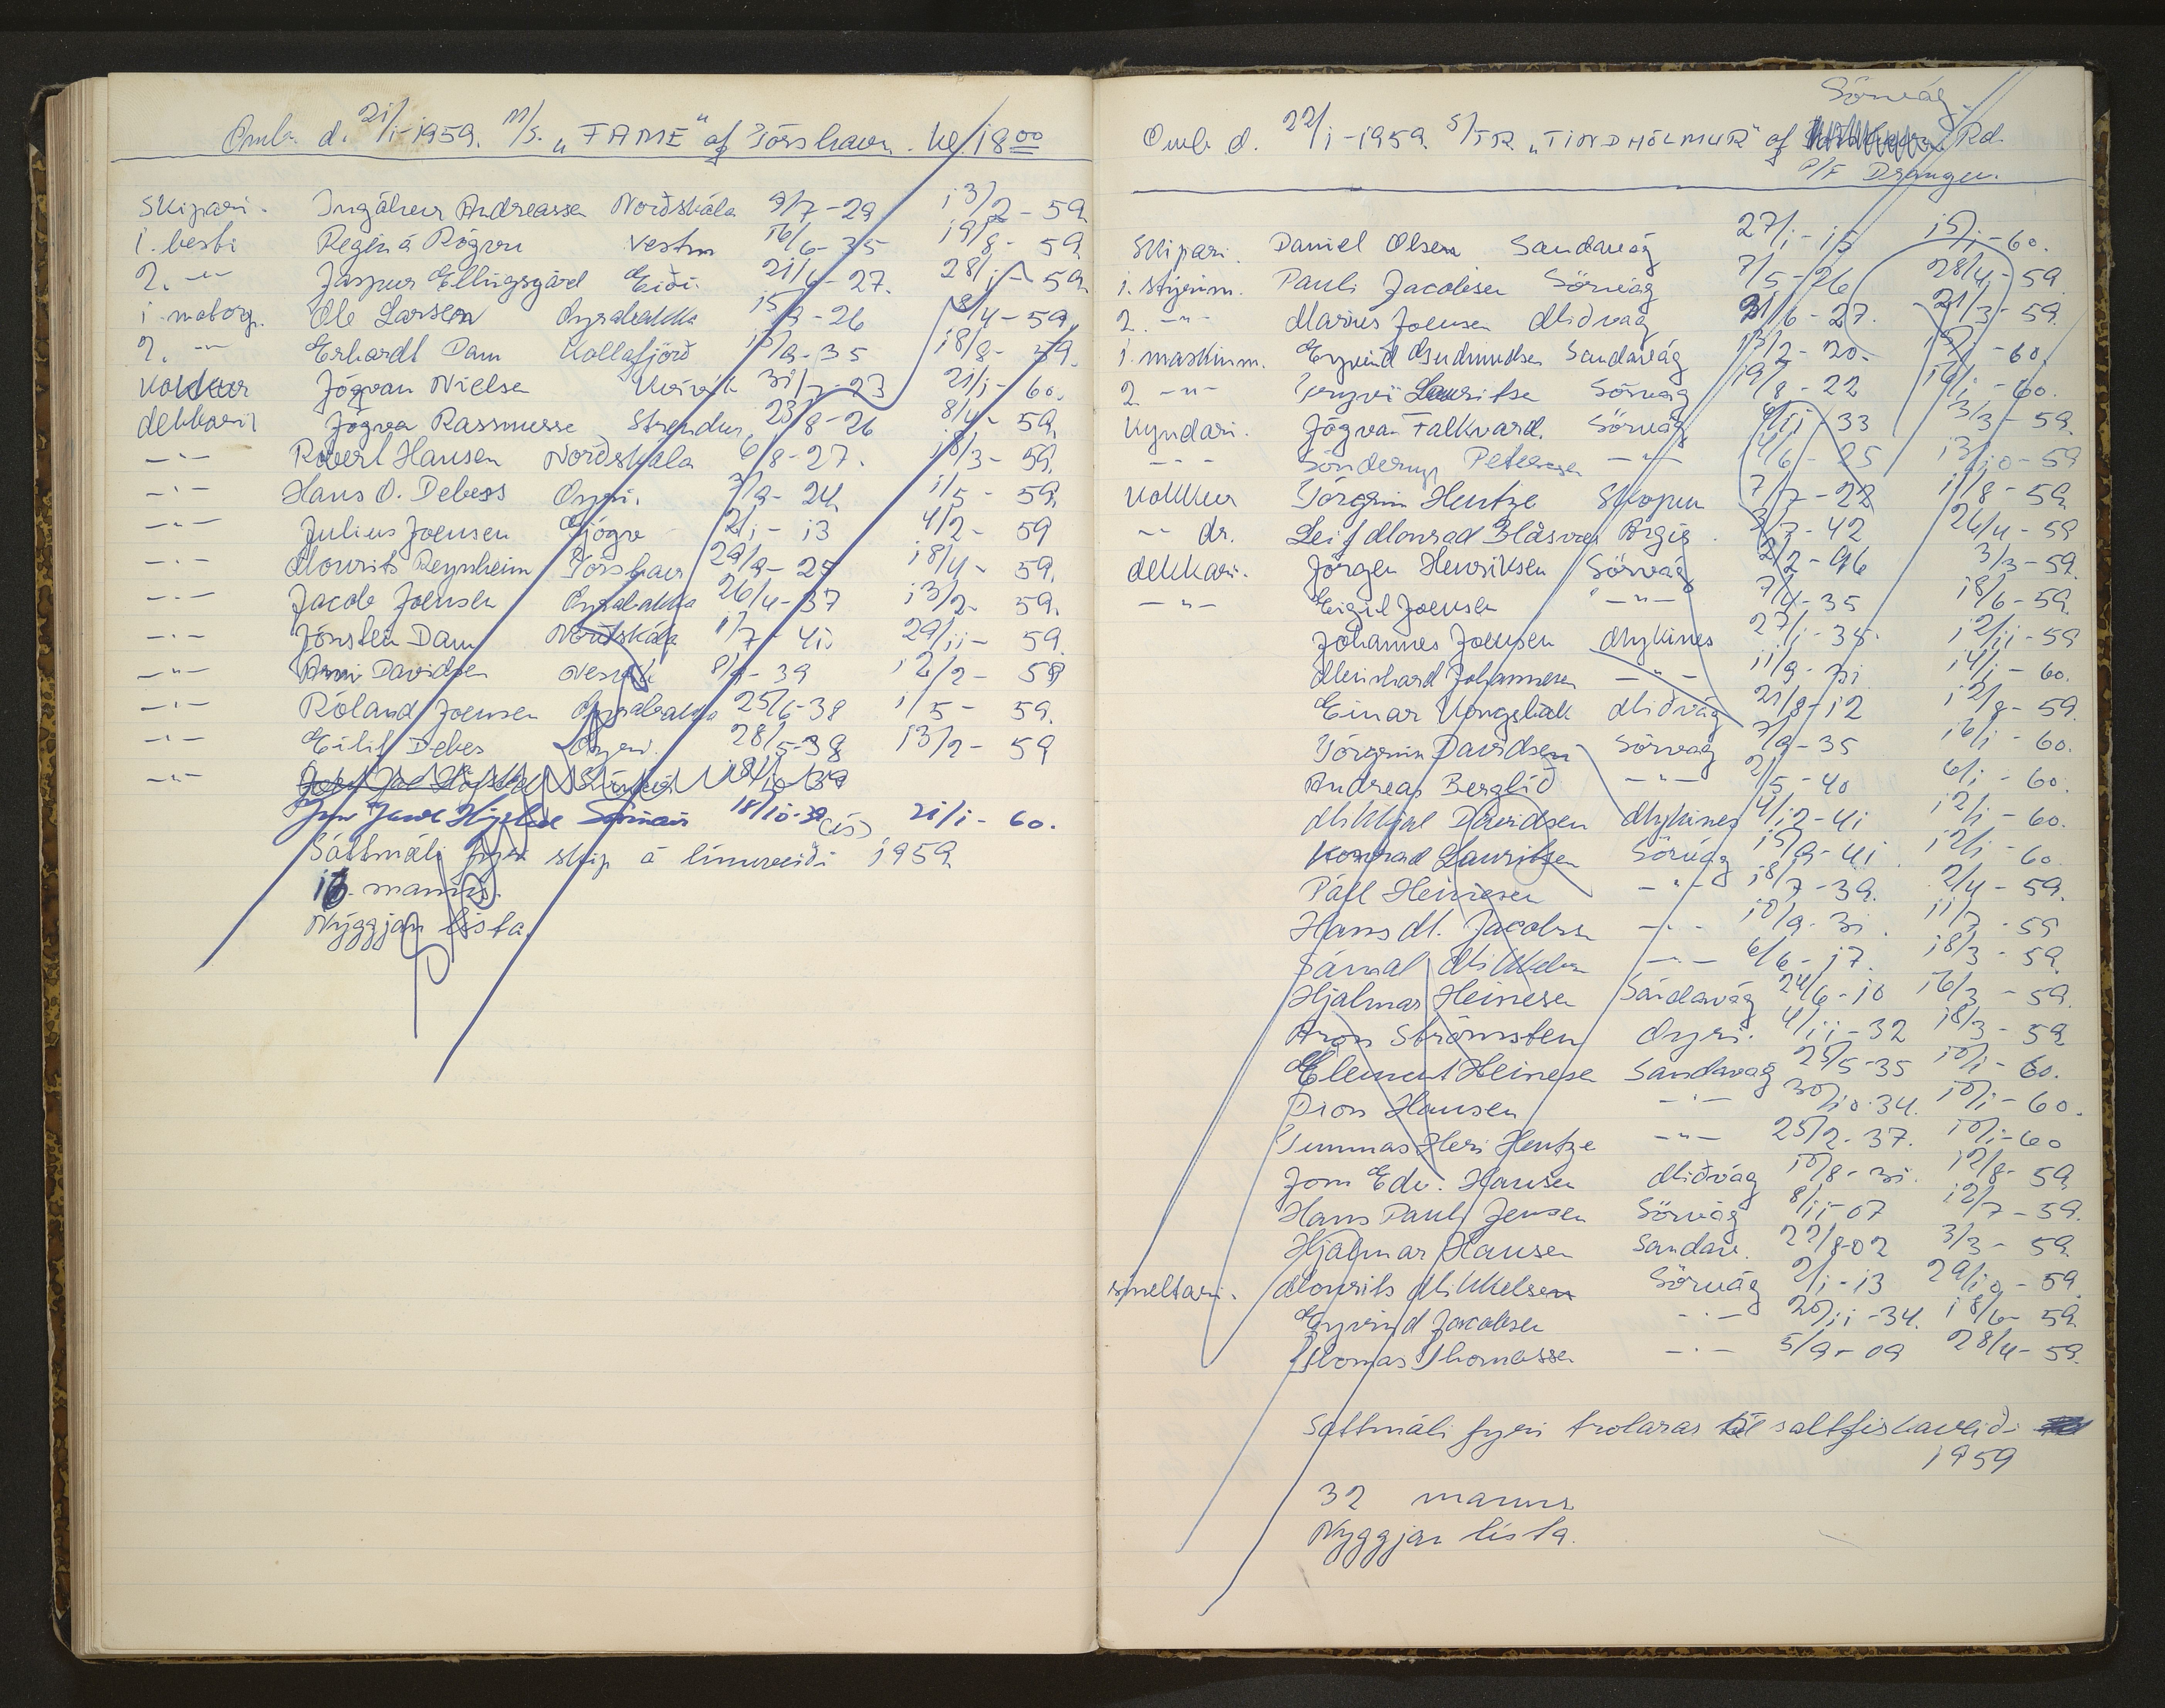 Omb. d. 21/1-1959. M/S. „FAME" af Tórshavn. kl. 18 00
Skipari. Ingálvur Andreassen Norðskála 9/7-29 13/2-59
1. besti Regin á Rógvu Vestm 16/6-35 19/8-59
2. -"- Jaspur Ellingsgård Eiði 21/6-27. 28/1-59.
1. motorp. Ole Larsen Oyrabakka 15/9-26 8/4-59.
2. -"- Erhardt Dam Kollafjørð /9-35 18/8-59.
Kokkur Jógvan Nielsen Kvívík 31/7-23 21/1-60.
dekkari Jógva Rasmusse Strendur 23/8-26 8/4-59.
-"- Robert Hansen Norðskála 6/8-27. 18/3-59.
-"- Hans O. Debess Oyri. 3/9-24 1/5-59.
-"- Julius Joensen Gjógv 2/1-13 4/2-59
-"- Mourits Reynheim Tórshavn 29/9-25 18/4-59.
-"- Jacob Joensen Oyrabakka 26/4-37 13/2-59.
-"- Jónsten Dam Norðskála 1/7-41. 29/11-59.
-"- Arni Davidsen Nesvík 8/ -39 12/2-59
-"- Róland Joensen Oyrabakka 25/6-38 1/5-59.
-"- Eilif Debes Oyri. 28/5-38 13/2-59
-"- 18/10-39
18/10-39 (ís) 21/1-60.
Sáttmáli fyri skip á línuveiði 1959
16 manns.
Nýggjan lista.
Sörvág
Omb. d. 22/1-1959. S/TR. „TINDHÓLMUR" af Rd.
P/F Drangur.
Skipari. Daniel Olsen Sandavág 27/1-15 15/1-60.
1. stýrim. Pauli Jacobsen Sörvág 7/5-26 28/4-59.
2. -"- Marius Joensen Miðvág 21/6-27. 21/3-59.
1. maskinm. Eyvind Gudmundsen Sandavág 13/2-20. -60.
2. -"- Tryvi Lauritse Sörvág 19/8-22 19/1-60.
Kyndari. Jógvan Falkvard. Sörvág 4/11-33 3/3-59.
-"- Petersen -"- 4/6-25 13/10-59
Kokkur Tórgrim Hentze Skopun 7/7-22 11/8-59.
-"- dr. Leif Monrad Blásvær Argir. 3/7-42 24/4-59
dekkari. Jörgen Henriksen Sörvág 2/2-96 3/3-59.
-"- Eigil Joensen -"- 7/4-35 18/6-59.
Johannes Joensen Mykines 27/1-35. 12/11-59
Meinhard Johannesen -"- 11/9-31 14/1-60.
Einar Kongsbak Miðvág 21/8-12 12/8-59.
Tórgrim Davidsen Sörvág 7/9-35 16/1-60.
Andreas Berglíð -"- 2/5-40 6/1-60.
Mikkjal Davidsen Mykines 4/12-41 12/1-60.
Konrad Lauritsen Sörvág 15/9-41. 12/1-60
Páll Heinesen -"- 18/7-39. 2/4-59.
Hans M. Jacobsen -"- 10/9-31. 11/7-59
Sámal Mikkelsen -"- 6/6-17. 18/3-59.
Hjalmar Heinesen Sandavág 24/6-10 16/3-59.
Aron Strömsten Oyri. 4/11-32 18/3-59
Element Heinesen Sandavág 25/5-35 10/1-60.
Dion Hansen -"- 30/10-34. 10/1-60.
Tummas Heri Hentze -"- 25/2-37. 10/1-60
Jom Edv. Hansen Miðvág 10/8-31. 12/8-59
Hans Pauli Jensen Sörvág 8/11-07 12/7-59.
Hjalmar Hansen Sandav. 22/8-02 3/3-59.
smeltari. Mourits Mikkelsen Sörvág 2/1-13 29/10-59.
Eyvind Jacobsen -"- 20/11-34. 18/6-59.
Thomas Thomassen -"- 5/9-09 28/4-59.
Sáttmáli fyri trolaras til saltfiskaveiði
1959
32 manns
Nyggjan lista.